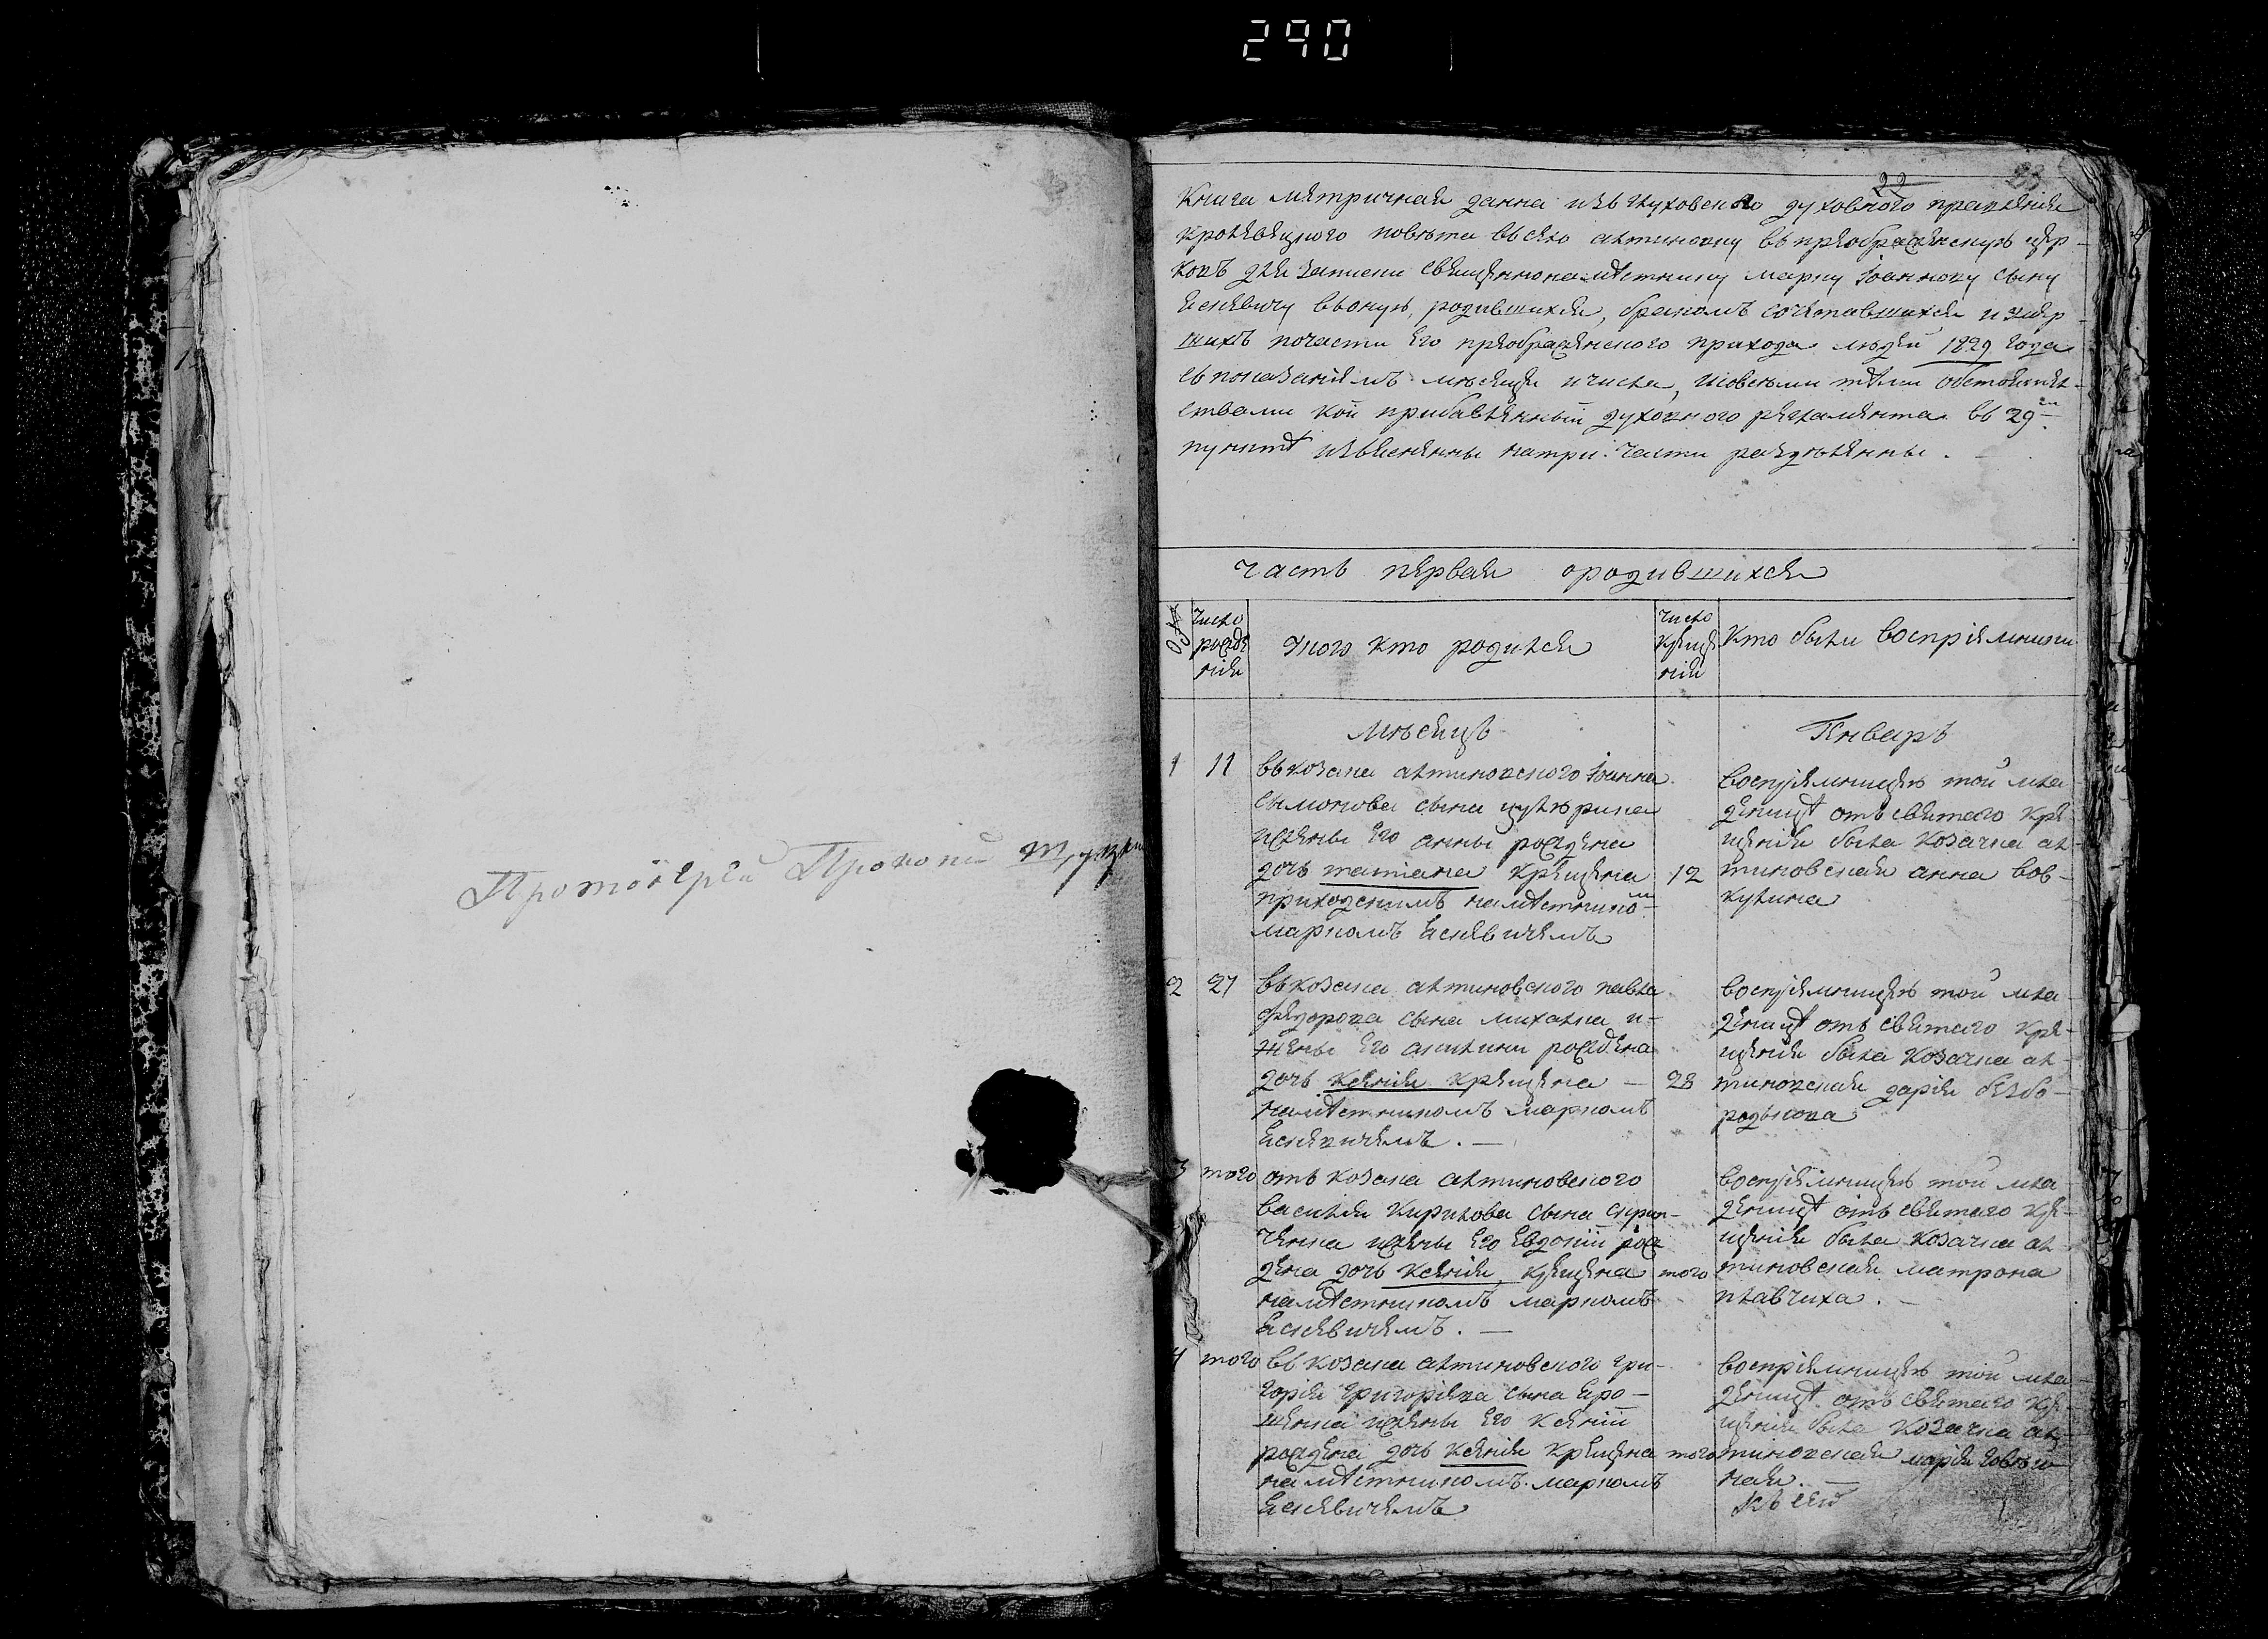 290
Протоіерей Прокопій
22
23
Книга метричная данна изъ глуховского духовного правленія
кролевецкого повѣта въ село алтиновку въ преображенскую цер-
ковъ для записи священнонамѣстнику марку Іоаннову сыну
Ясневичу въ оную, родившихся, бракомъ сочетавшихся и умер-
шихъ почасти его преображенского прихода людей 1829 года
съ показаніемъ мѣсяца и числа, и совсѣми тѣми обстоятел-
ствами кои прибавленный духовного регламента въ 29м
пунктѣ изъяснены на три части раздѣленны.
Часть первая о родившихся
Число рожденія
У кого кто родился
Число крещенія
Кто были воспріемники
Мѣсяцъ
Январъ
1
11
въ козака алтиновского Іоанна
сымонова сына цуперика
и жены его анны рождена
дочь татиана крещена
приходскимъ намѣстником
маркомъ Ясневичемъ
12
воспріемницею той мла
денцѣ отъ святаго кре
щенія была козачка ал-
тиновская анна вов-
кулина
2
27
въ козака алтиновского павла
федорова сына михална и
жены его акилини рождена
дочь ксенія крещена
намѣстникомъ маркомъ
Ясневичемъ.
28
воспріемницею той мла
денцѣ отъ святаго кре-
щенія была козачка ал-
тиновская дарія безбо-
родкова
3
того
отъ козака алтиновского
василія Кирилова сына
и жены его Евдокіи рож
дена дочь ксенія крещена
намѣстникомъ маркомъ
Ясневичемъ.
того
воспріемницею той мла
денцѣ отъ святаго кре-
щенія была козачка ал
тиновская матрона
плавчиха.
4
того
въ козака алтиновского гри-
горія григоріева сына Яро-
шенка и жены его ксеніи
рождена дочь ксенія крещена
намѣстникомъ маркомъ
Ясневичемъ
того
воспріемницею той мла-
денцѣ отъ святаго кре-
щенія была козачка ал-
тиновская марія